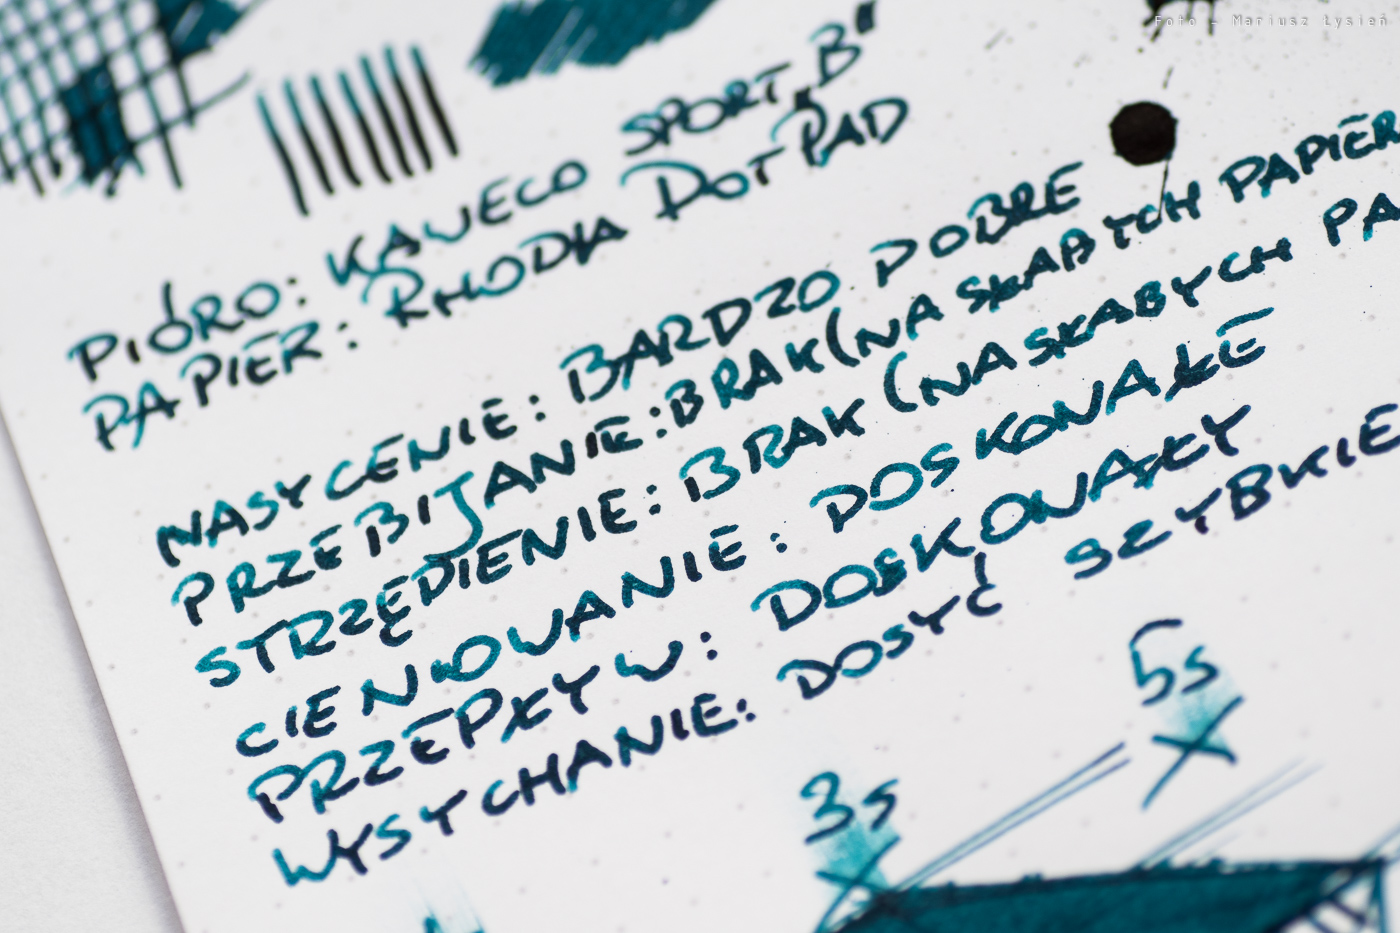 Foto - Mariusz Łysień
PIÓRO: KAWECO SPORT „B"
PAPIER: RHODIA DOT PAD
NASYCENIE: BARDZO DOBRE
PRZEBIJANIE: BRAK (NA SŁABYCH PAPIER
STRZĘPIENIE: BRAK (NA SŁABYCH PA
CIENIOWANIE: DOSKONAŁE
PRZEPŁYW: DOSKONAŁY
WYSYCHANIE: DOSYĆ SZYBKIE
5s
3s